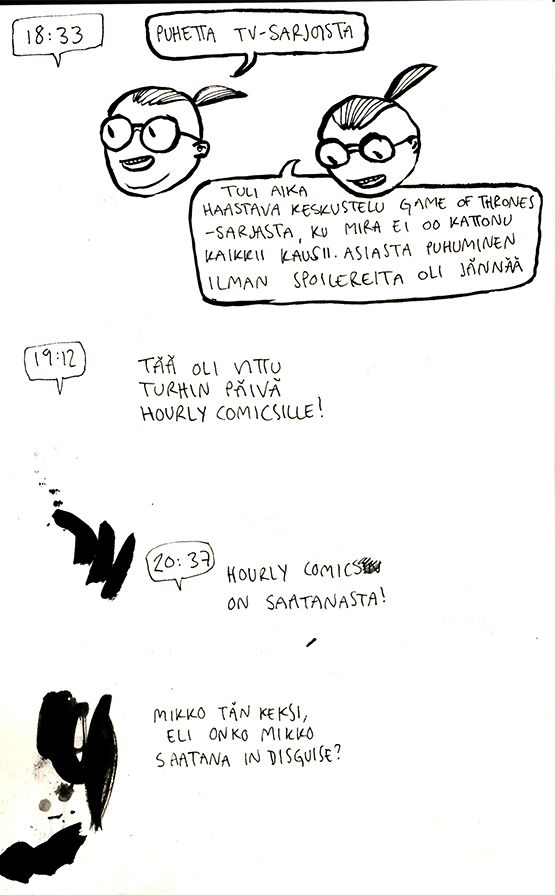 18:33
PUHETTA TV-SARJOISTA
TULI AIKA
HAASTAVA KESKUSTELU GAME OF THRONES
-SARJASTA, KU MIRA EI OO KATTONU
KAIKKII KAUSII. ASIASTA PUHUMINEN
ILMAN SPOILEREITA OLI JÄNNÄÄ
19:12
TÄÄ OLI VITTU
TURHIN PÄIVÄ
HOURLY COMICSILLE!
20:37
HOURLY COMICS
ON SAATANASTA!
MIKKO TÄN KEKSI,
ELI ONKO MIKKO
SAATANA IN DISGUISE?